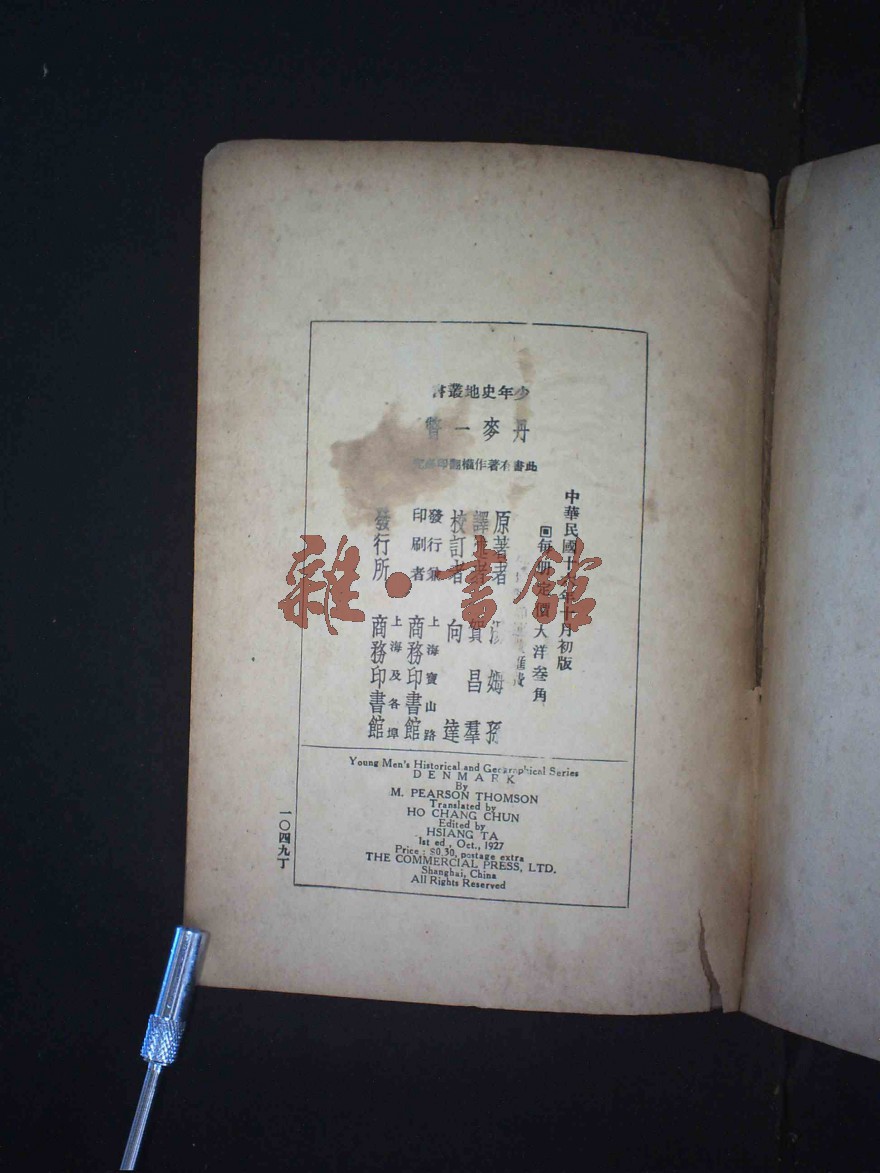 少年史地叢書
丹麥一瞥
此書有著作權翻印必究
中華民國十六年十月初版
回每册定價大洋叁角
原著者 湯姆孫
譯述者 賀昌羣
校訂者 向達
發行兼印刷者 上海寶山路 商務印書館
發行所 上海及各埠 商務印書館
Young Men's Historical and Geographical Series
DENMARK
By
M. PEARSON THOMSON
Translated by
HO CHANG CHUN
Edited by
HSIANG TA
1st ed., Oct., 1927
Price : $0.30, postage extra
THE COMMERCIAL PRESS, LTD.
Shanghai, China
All Rights Reserved
一〇四九丁
雜·書館